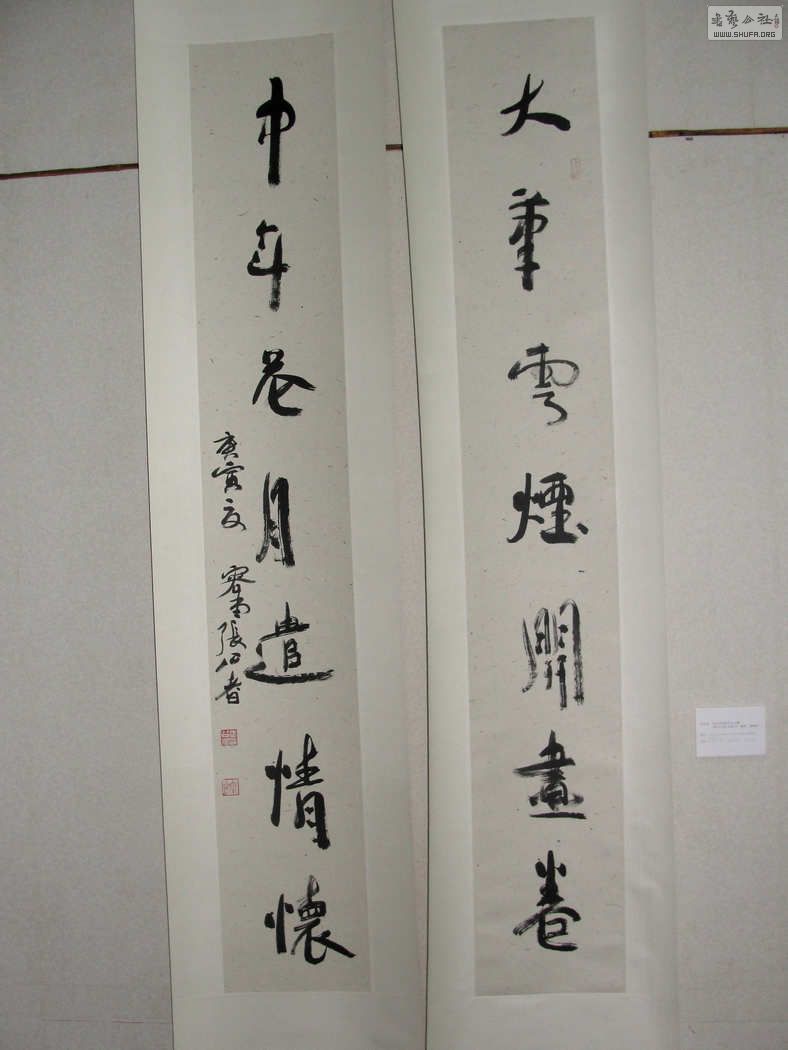 書藝公社
WWW.SHUFA.ORG
大筆雲煙開畫卷
中年花月遣情懷
庚寅夏 張公者